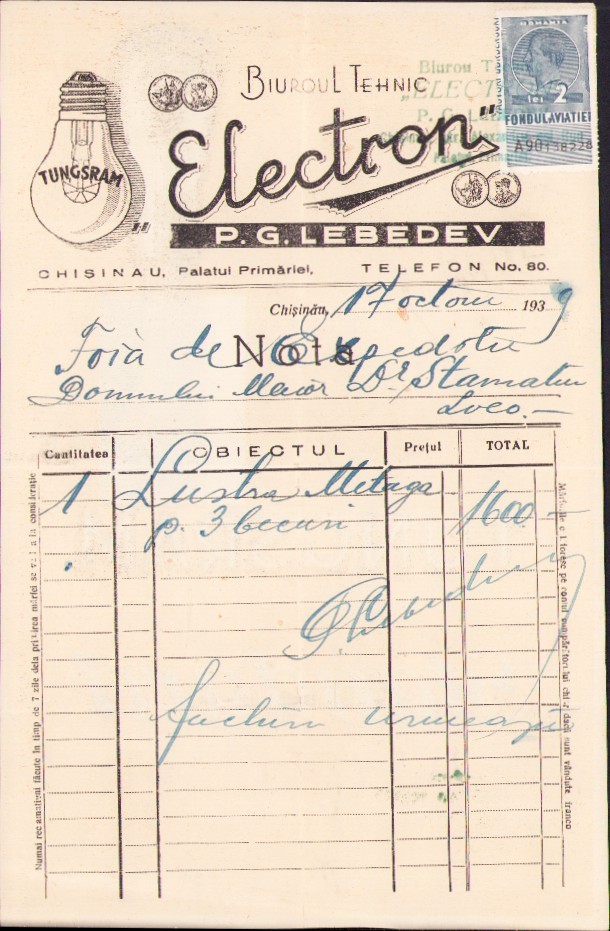 ROMANIA
LEI 2
FONDUL AVIATIEI
A90138228
Biurou T
„ELECT
P. G. Le
BIUROUL TEHNIC
TUNGSRAM
„Electron"
P. G. LEBEDEV
CHISINAU, Palatul Primăriei, TELEFON No. 80.
Chişinău, 17 octom 1939
Nota
Foia de Expeditie
Domnului Maior Dr Stamatiu
Loco.—
Cantitatea OBIECTUL Preţul TOTAL
1 Lustra Metaga 1600—
p. 3 becuri
P. Lebedev
factura urmează
Numai reclamaţiuni făcute în timp de 7 zile dela primirea mărfei se vor lua la considerare
Mărfurile călătoresc pe contul cumpărătorului chiar dacă sunt vândute franco